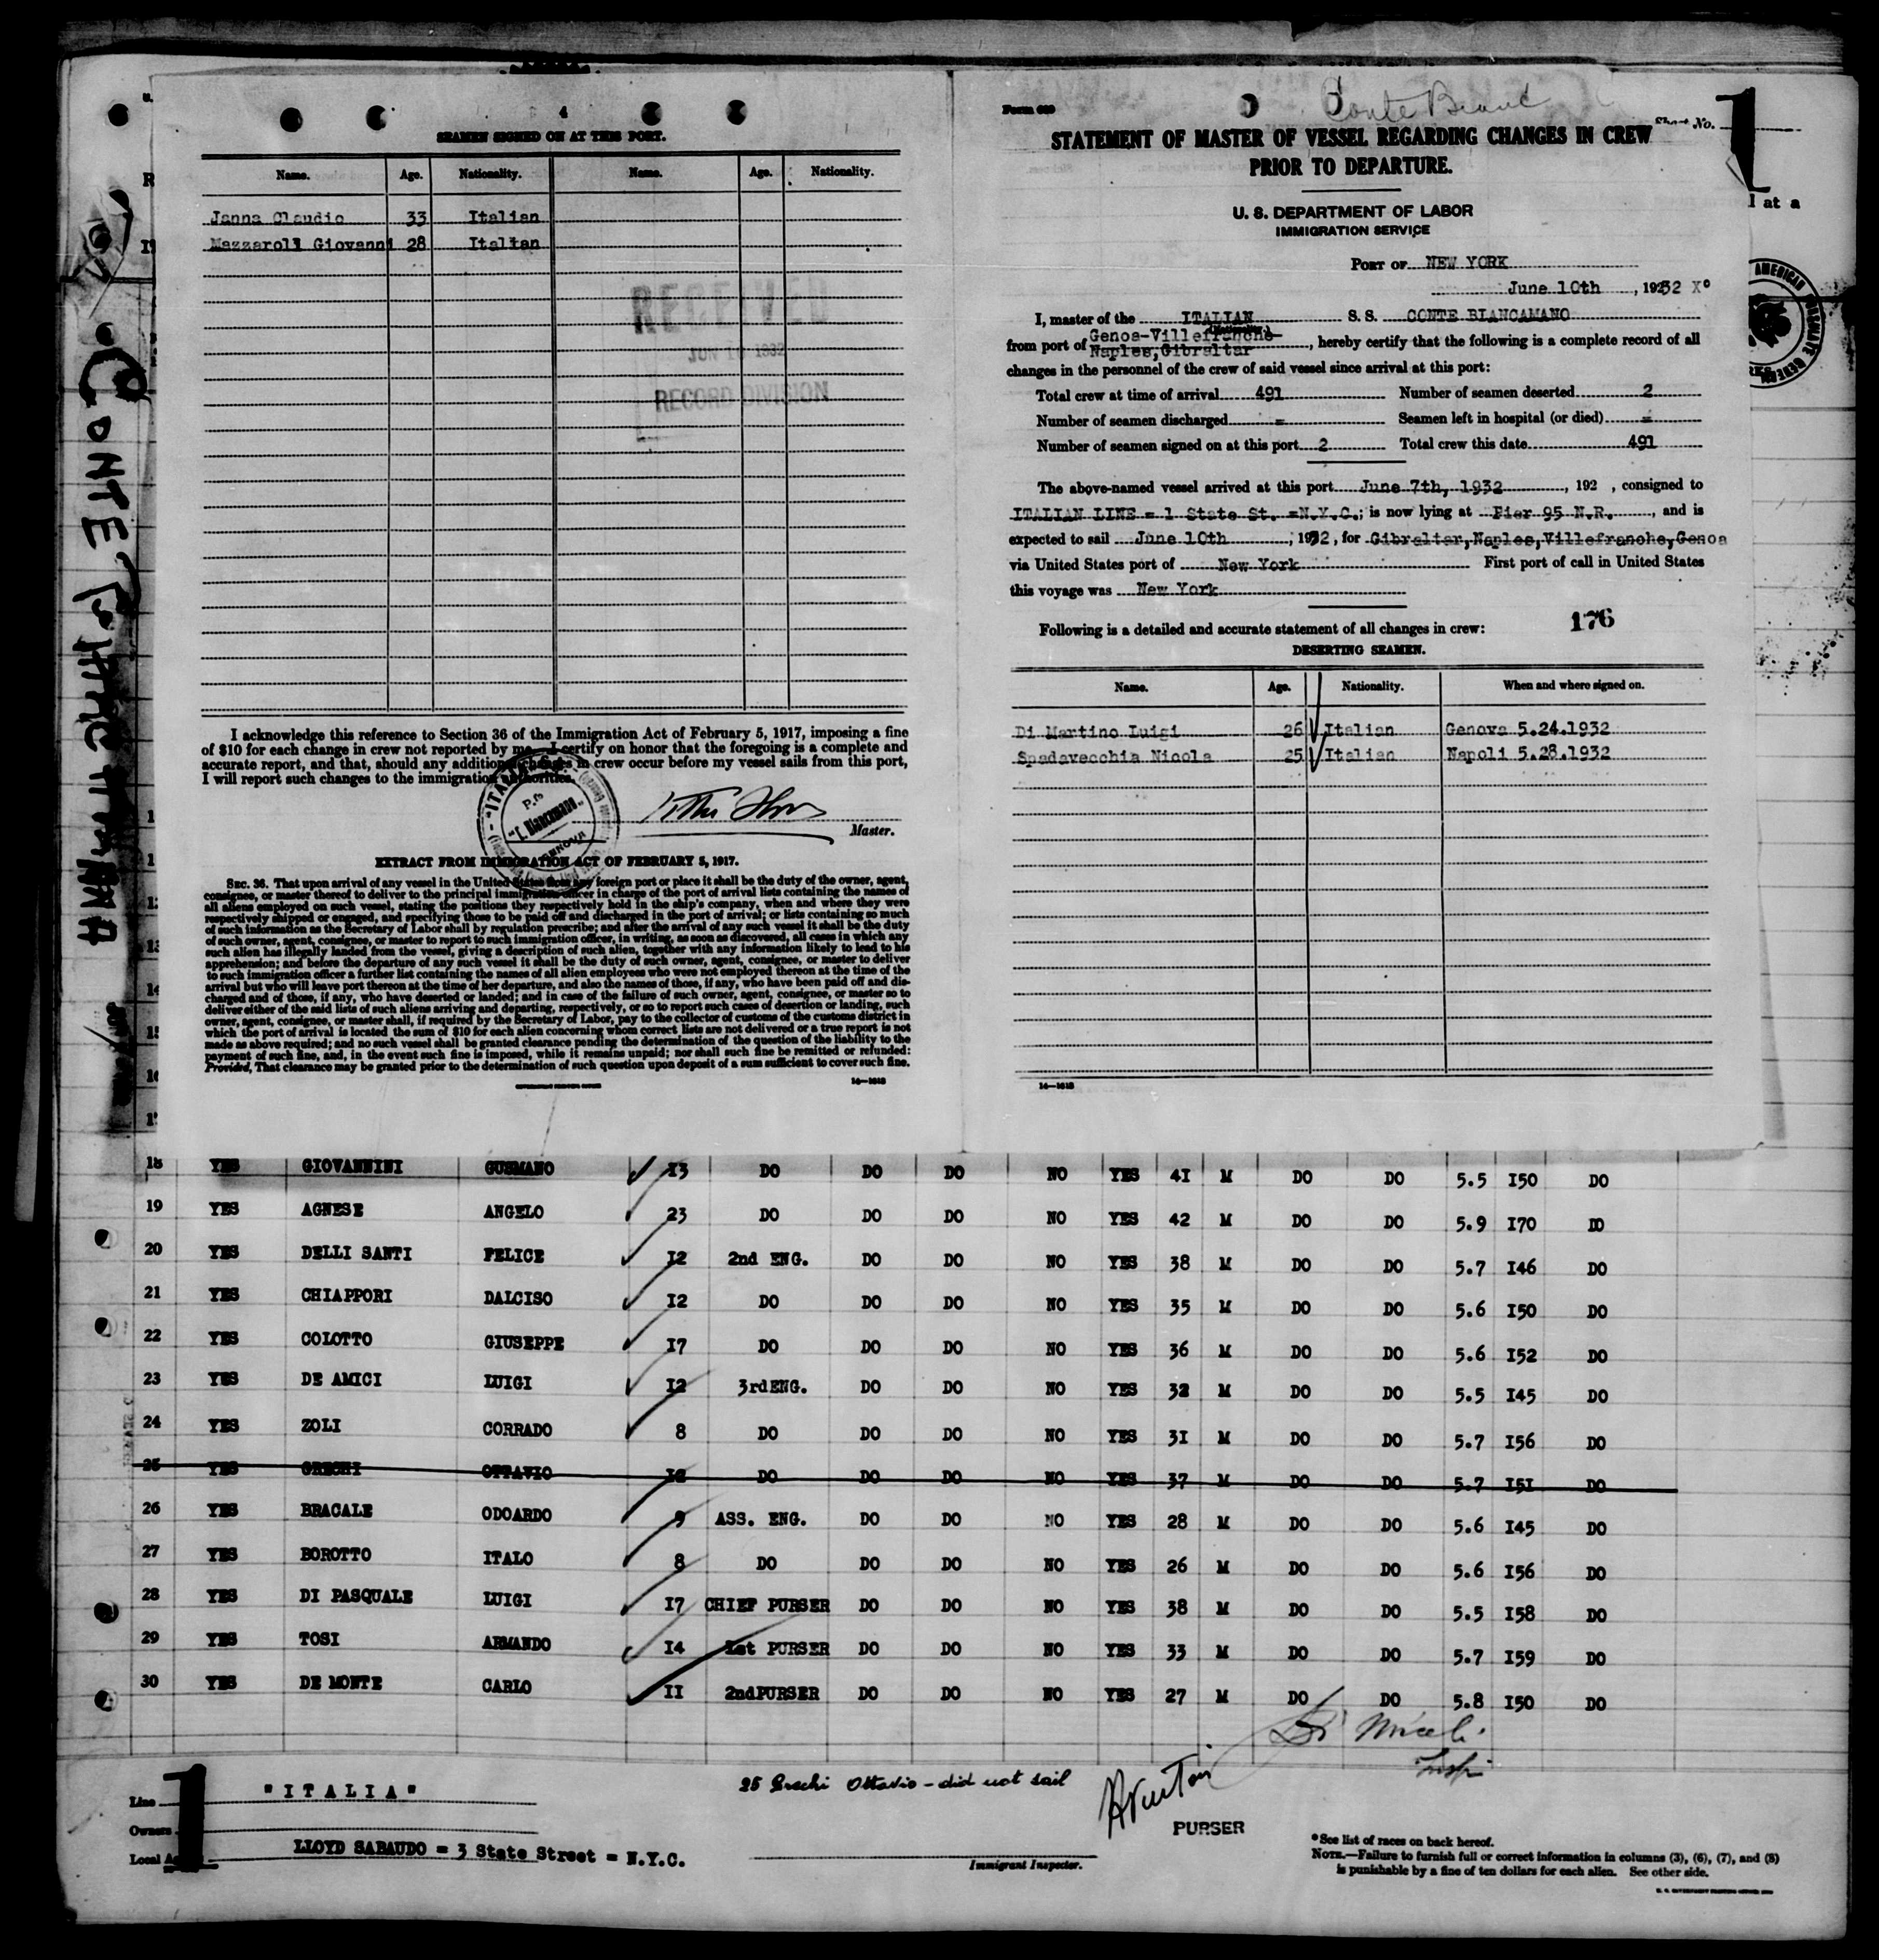 4
SEAMEN SIGNED ON AT THIS PORT.
Name. Age. Nationality. Name. Age. Nationality.
Janna Claudio 33 Italian
Mazzaroli Giovanni 28 Italian
RECEIVED
JUN 10 1932
RECORD DIVISION
I acknowledge this reference to Section 36 of the Immigration Act of February 5, 1917, imposing a fine
of $10 for each change in crew not reported by me. I certify on honor that the foregoing is a complete and
accurate report, and that, should any additional changes in crew occur before my vessel sails from this port,
I will report such changes to the immigration authorities.
Master.
EXTRACT FROM IMMIGRATION ACT OF FEBRUARY 5, 1917.
SEC. 36. That upon arrival of any vessel in the United States from any foreign port or place it shall be the duty of the owner, agent,
consignee, or master thereof to deliver to the principal immigration officer in charge of the port of arrival lists containing the names of
all aliens employed on such vessel, stating the positions they respectively hold in the ship's company, when and where they were
respectively shipped or engaged, and specifying those to be paid off and discharged in the port of arrival; or lists containing so much
of such information as the Secretary of Labor shall by regulation prescribe; and after the arrival of any such vessel it shall be the duty
of such owner, agent, consignee, or master to report to such immigration officer, in writing, as soon as discovered, all cases in which any
such alien has illegally landed from the vessel, giving a description of such alien, together with any information likely to lead to his
apprehension; and before the departure of any such vessel it shall be the duty of such owner, agent, consignee, or master to deliver
to such immigration officer a further list containing the names of all alien employees who were not employed thereon at the time of the
arrival but who will leave port thereon at the time of her departure, and also the names of those, if any, who have been paid off and dis-
charged and of those, if any, who have deserted or landed; and in case of the failure of such owner, agent, consignee, or master so to
deliver either of the said lists of such aliens arriving and departing, respectively, or so to report such cases of desertion or landing, such
owner, agent, consignee, or master shall, if required by the Secretary of Labor, pay to the collector of customs of the customs district in
which the port of arrival is located the sum of $10 for each alien concerning whom correct lists are not delivered or a true report is not
made as above required; and no such vessel shall be granted clearance pending the determination of the question of the liability to the
payment of such fine, and, in the event such fine is imposed, while it remains unpaid; nor shall such fine be remitted or refunded:
Provided, That clearance may be granted prior to the determination of such question upon deposit of a sum sufficient to cover such fine.
GOVERNMENT PRINTING OFFICE 14—1613
Form 689
Sheet No.
STATEMENT OF MASTER OF VESSEL REGARDING CHANGES IN CREW
PRIOR TO DEPARTURE.
U. S. DEPARTMENT OF LABOR
IMMIGRATION SERVICE
PORT OF NEW YORK
June 10th, 1932 Xº
I, master of the ITALIAN S. S. CONTE BIANCAMANO
from port of Genoa-Villefranche
Naples, Gibraltar, hereby certify that the following is a complete record of all
changes in the personnel of the crew of said vessel since arrival at this port:
Total crew at time of arrival 491 Number of seamen deserted 2
Number of seamen discharged = Seamen left in hospital (or died) =
Number of seamen signed on at this port 2 Total crew this date 491
The above-named vessel arrived at this port June 7th, 1932, 192 , consigned to
ITALIAN LINE = 1 State St. =N.Y.C.; is now lying at Pier 95 N.R., and is
expected to sail June 10th, 1932, for Gibraltar, Naples, Villefranche, Genoa
via United States port of New York First port of call in United States
this voyage was New York
Following is a detailed and accurate statement of all changes in crew: 176
DESERTING SEAMEN.
Name. Age. Nationality. When and where signed on.
Di Martino Luigi 26 Italian Genova 5.24.1932
Spadavecchia Nicola 25 Italian Napoli 5.28.1932
14—1613
18 YES GIOVANNINI GUSMANO I3 DO DO DO NO YES 4I M DO DO 5.5 I50 DO
19 YES AGNESE ANGELO 23 DO DO DO NO YES 42 M DO DO 5.9 I70 DO
20 YES DELLI SANTI FELICE I2 2nd ENG. DO DO NO YES 38 M DO DO 5.7 I46 DO
21 YES CHIAPPORI DALCISO I2 DO DO DO NO YES 35 M DO DO 5.6 I50 DO
22 YES COLOTTO GIUSEPPE I7 DO DO DO NO YES 36 M DO DO 5.6 I52 DO
23 YES DE AMICI LUIGI I2 3rdENG. DO DO NO YES 32 M DO DO 5.5 I45 DO
24 YES ZOLI CORRADO 8 DO DO DO NO YES 3I M DO DO 5.7 I56 DO
25 YES GRECHI OTTAVIO I2 DO DO DO NO YES 37 M DO DO 5.7 I5I DO
26 YES BRACALE ODOARDO 9 ASS. ENG. DO DO NO YES 28 M DO DO 5.6 I45 DO
27 YES BOROTTO ITALO 8 DO DO DO NO YES 26 M DO DO 5.6 I56 DO
28 YES DI PASQUALE LUIGI I7 CHIEF PURSER DO DO NO YES 38 M DO DO 5.5 I58 DO
29 YES TOSI ARMANDO I4 1st PURSER DO DO NO YES 33 M DO DO 5.7 I59 DO
30 YES DE MONTE CARLO II 2ndPURSER DO DO NO YES 27 M DO DO 5.8 I50 DO
25 Grechi Ottavio - did not sail
PURSER
Line "ITALIA"
Owners
Local Agents LLOYD SABAUDO = 3 State Street = N.Y.C.
Immigrant Inspector.
*See list of races on back hereof.
NOTE.—Failure to furnish full or correct information in columns (3), (6), (7), and (8)
is punishable by a fine of ten dollars for each alien. See other side.